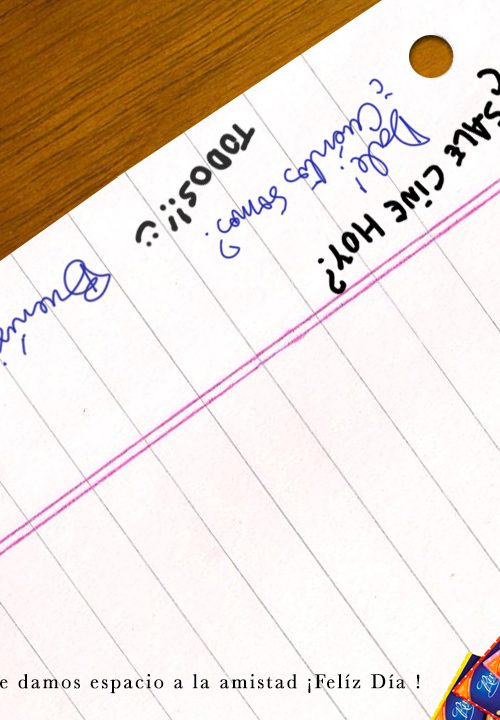 ¿SALE CINE HOY?
Dale!
¿Cuántos somos?
TODOS!!! :)
Buenís
e damos espacio a la amistad ¡Felíz Día !